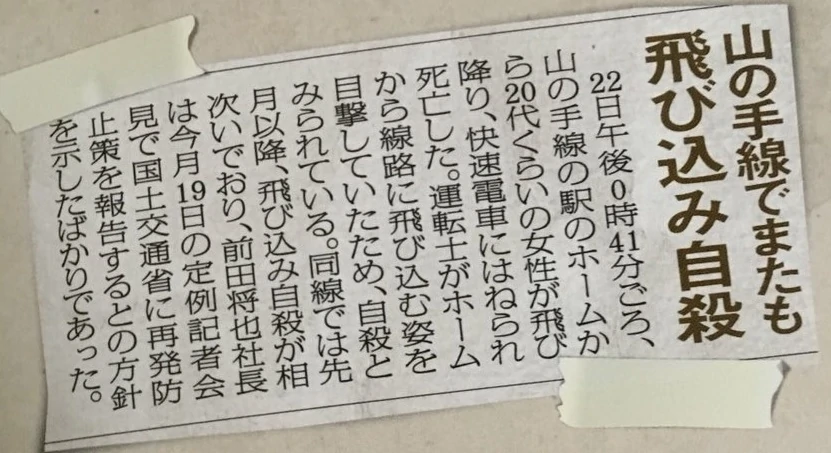 山の手線でまたも
飛び込み自殺
22日午後0時41分ごろ、
山の手線の駅のホームか
ら20代くらいの女性が飛び
降り、快速電車にはねられ
死亡した。運転士がホーム
から線路に飛び込む姿を
目撃していたため、自殺と
みられている。同線では先
月以降、飛び込み自殺が相
次いでおり、前田将也社長
は今月19日の定例記者会
見で国土交通省に再発防
止策を報告するとの方針
を示したばかりであった。